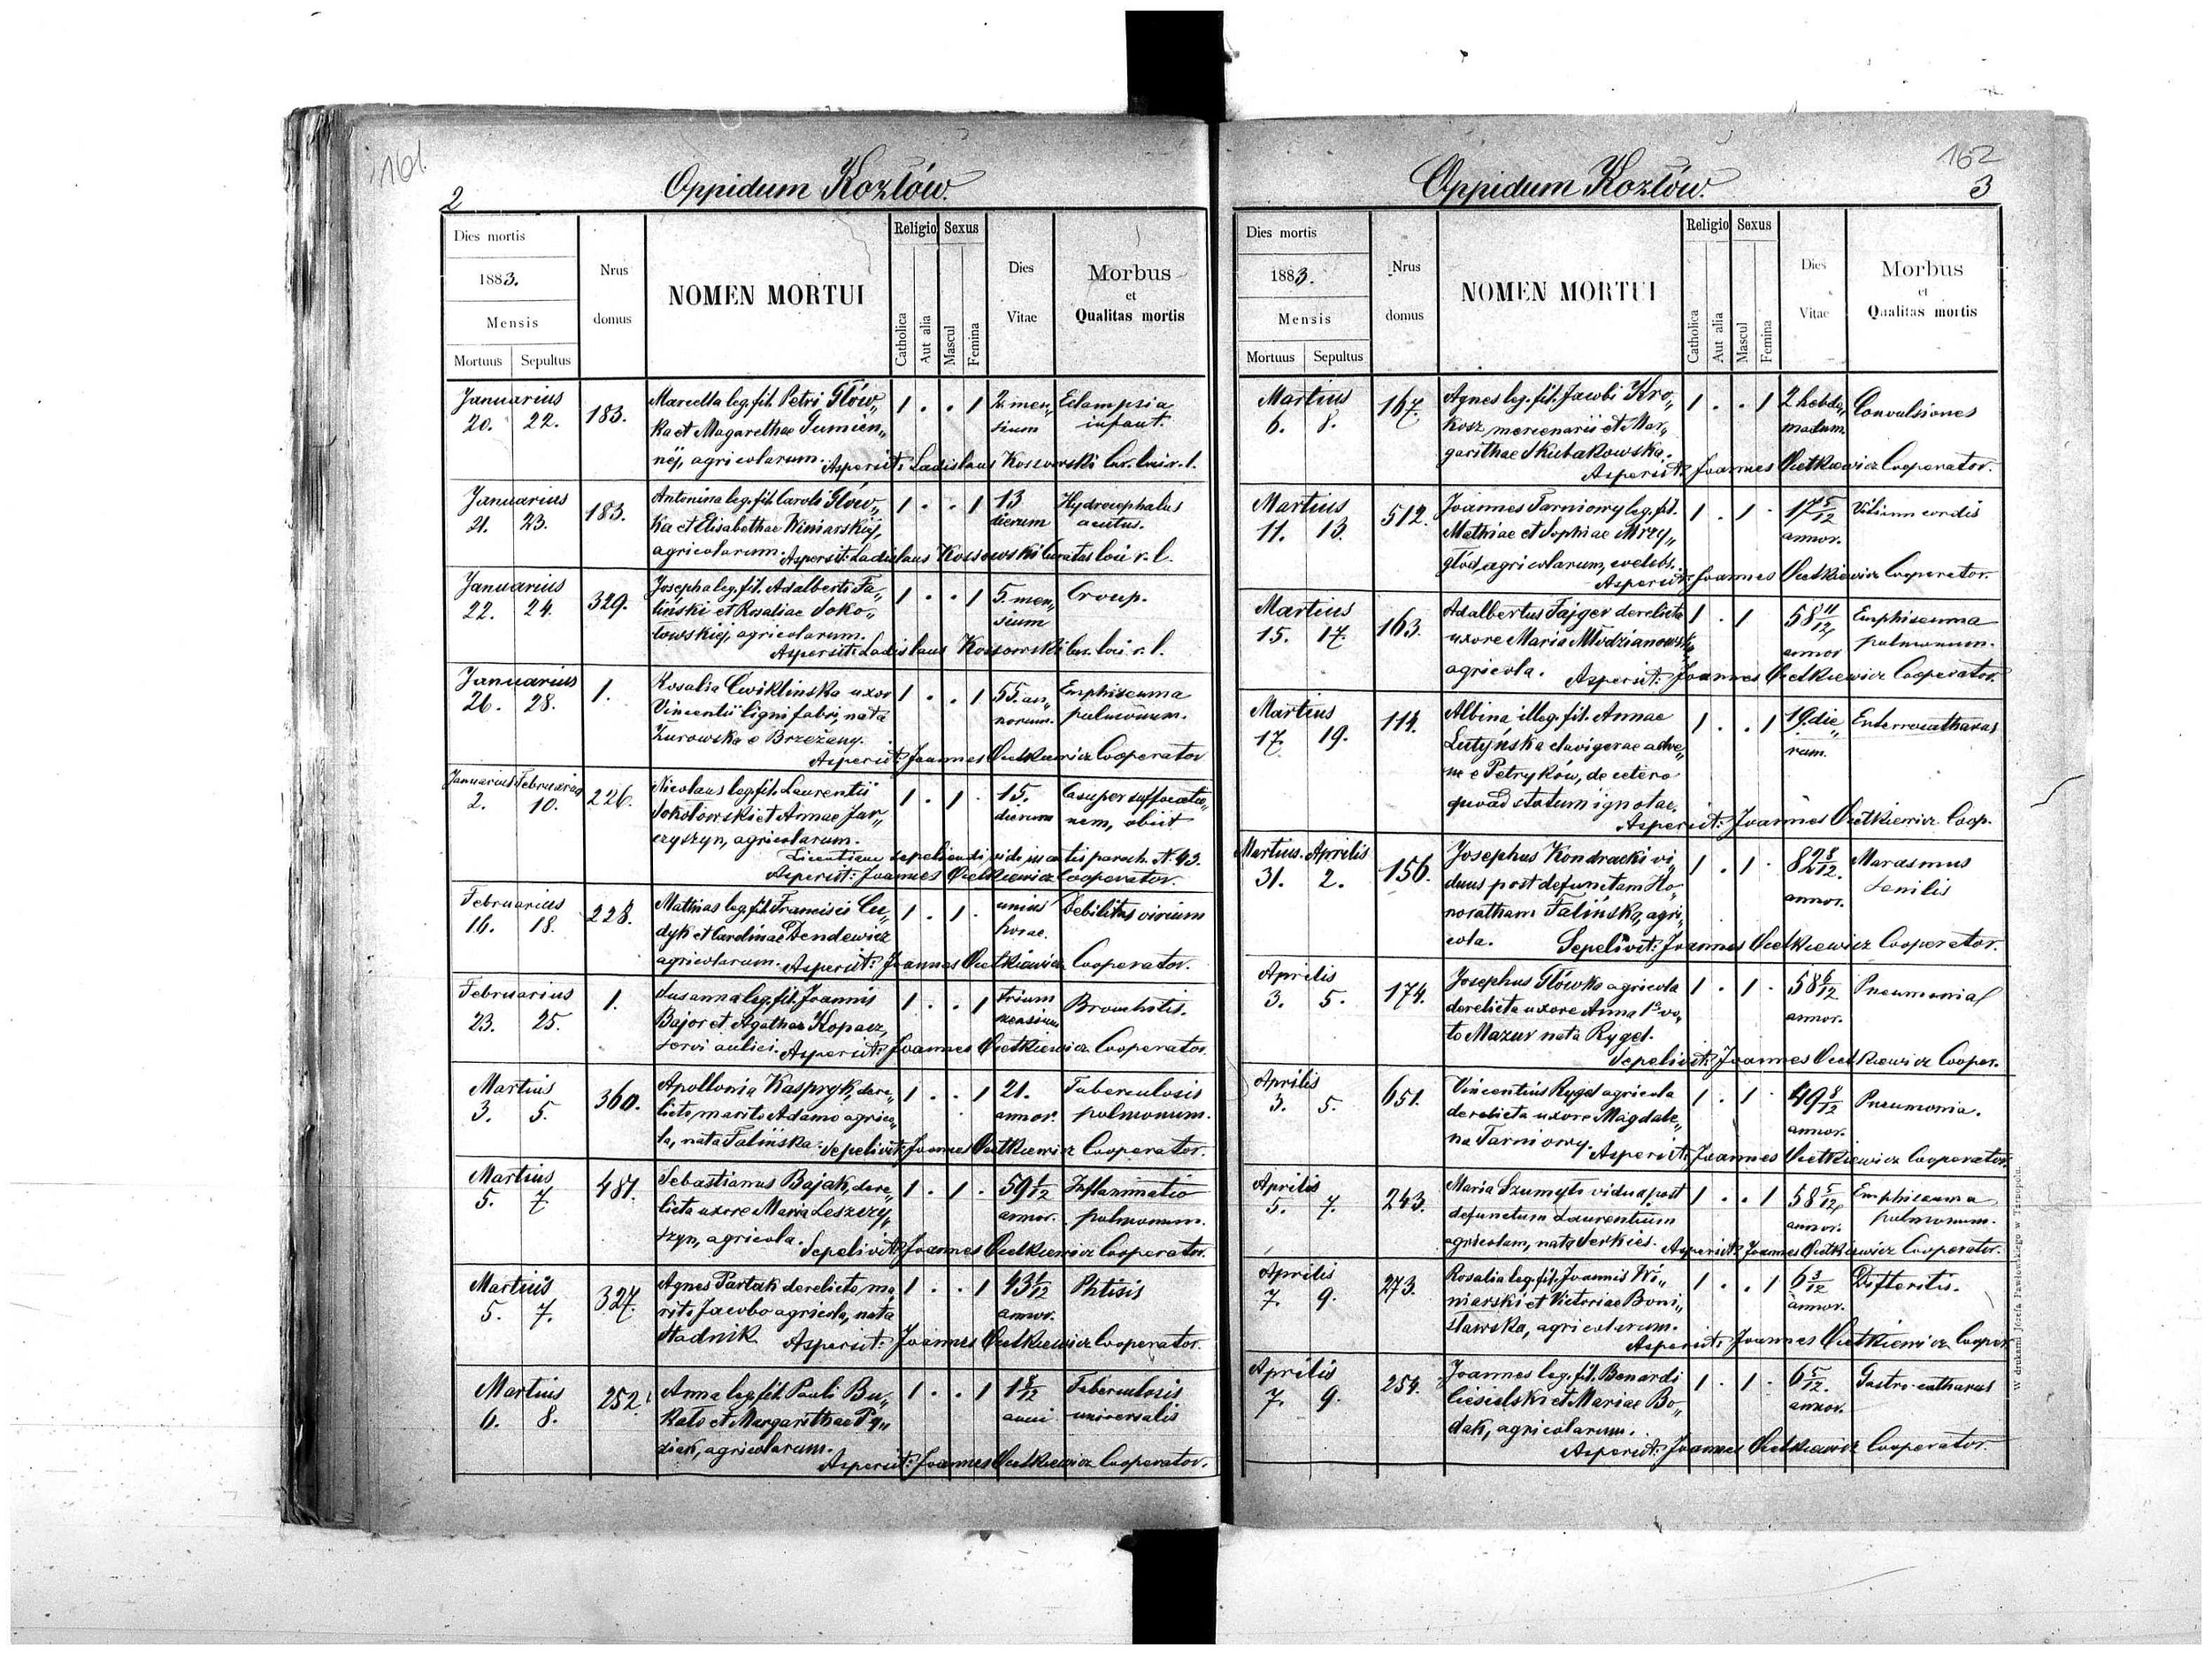 161
2
Oppidum Kozłów.
Dies mortis
1883.
Mensis
Mortuus Sepultus
Nrus
domus
NOMEN MORTUI
Religio Sexus
Catholica
Aut alia
Mascul
Femina
Dies
Vitae
Morbus
et
Qualitas mortis
Januarius
20. 22. 183.
Marcella leg. fil. Petri Głów„
ka et Magarethae Gumien„
nej, agricolarum.
1 . . 1
2. men„
sium
Eclampsia
infant.
Aspersit: Ladislaus Kossowski Cur. loci r. l.
Januarius
21. 23. 183.
Antonina leg. fil. Caroli Głów„
ka et Elisabethae Winiarskiej,
agricolarum.
1 . . 1
13
dierum
Hydrocephalus
acutus.
Aspersit: Ladislaus Kossowski Curatus loci r. l.
Januarius
22. 24. 329.
Josepha leg. fil. Adalberti Fa„
liński et Rosaliae Soko„
łowskiej, agricolarum.
1 . . 1
5. men„
sium
Croup.
Aspersit: Ladislaus Kossowski Cur. loci r. l.
Januarius
26. 28. 1.
Rosalia Cwiklinska uxor
Vincentii ligni fabri, nata
Żurowska e Brzeżany.
1 . . 1
55. an„
norum.
Emphisemma
pulmonum.
Aspersit: Joannes Cooperator
Januarius Februarius
2. 10. 226.
Nicolaus leg. fil. Laurentii
Sokołowski et Annae Jar„
czyszyn, agricolarum.
1 . 1 .
15.
dierum
Casu per suffocatio„
nem, obiit
Licentiam sepeliendi vide in actis paroch. N. 43.
Aspersit: Joannes Cooperator.
Februarius
16. 18. 228.
Mathias leg. fil. Francisci Cu„
dyk et Carolinae Dendewicz
agricolarum.
1 . 1 .
unius
horae.
Debilitas virium
Aspersit: Joannes Cooperator.
Februarius
23. 25. 1.
Susanna leg. fil. Joannis
Bajor et Agathae Kopacz,
servi aulici.
1 . . 1
trium
mensium
Bronchitis.
Aspersit: Joannes Cooperator.
Martius
3. 5. 360.
Apollonia Kaspryk, dere„
licto, marito Adamo agrico„
la, nata Falińska.
1 . . 1
21.
annor.
Tuberculosis
pulmonum.
Sepelivit: Joannes Cooperator.
Martius
5. 7. 481.
Sebastianus Bajak, dere„
licta uxore Maria Leszczy„
szyn, agricola.
1 . 1 .
59 1/12
annor.
Inflammatio
pulmonum.
Sepelivit: Joannes Cooperator.
Martius
5. 7. 327.
Agnes Partak derelicto, ma„
rito Jacobo agricola, nata
Hadnik
1 . . 1
43 1/12
annor.
Phtisis
Aspersit: Joannes Cooperator.
Martius
6. 8. 252.
Anna leg. fil. Pauli Bu„
kało et Margarithae
agricolarum.
1 . . 1
1 8/12
anni
Tuberculosis
universalis
Aspersit: Joannes Cooperator.
162
3
Oppidum Kozłów.
Dies mortis
1883.
Mensis
Mortuus Sepultus
Nrus
domus
NOMEN MORTUI
Religio Sexus
Catholica
Aut alia
Mascul
Femina
Dies
Vitae
Morbus
et
Qualitas mortis
Martius
6. 8. 167.
Agnes leg. fil. Jacobi Kro„
kosz, mercenarii et Mar„
garithae Skubakowska.
1 . . 1
2 hebdo„
madum.
Convulsiones
Aspersit: Joannes Cooperator.
Martius
11. 13. 512.
Joannes Tarniowy leg. fil.
Mathiae et Sophiae Mrzy„
głód, agricolarum, coelebs.
1 . 1 .
17 5/12
annor.
Vitium cordis
Aspersit: Joannes Cooperator.
Martius
15. 17. 163.
Adalbertus Fajger derelicta
uxore Maria Młodzianowska
agricola.
1 . 1
58 11/12
annor
Emphisemma
pulmonum.
Aspersit: Joannes Cooperator.
Martius
17. 19. 114.
Albina illeg. fil. Annae
Lutyńska clavigerae adve„
nae e Petryków, de cetero
quoad statum ignotae.
1 . . 1
19. die„
rum.
Enterrocatharus
Aspersit: Joannes Coop.
Martius. Aprilis
31. 2. 156.
Josephus Kondracki vi„
duus post defunctam Ho„
noratham Falińska, agri„
cola.
1 . 1 .
82 8/12.
annor.
Marasmus
senilis
Sepelivit: Joannes Cooperator.
Aprilis
3. 5. 174.
Josephus Główka agricola
derelicta uxore Anna 1º vo„
to Mazur nata Rygel.
1 . 1 .
58 6/12
annor.
Pneumonia
Sepelivit: Joannes Cooper.
Aprilis
3. 5. 651.
Vincentius Rygel agricola
derelicta uxore Magdale„
na Tarniowy.
1 . 1 .
49 8/12
annor.
Pneumonia.
Aspersit: Joannes Cooperator.
Aprilis
5. 7. 243.
Maria Szumyło vidua post
defunctum Laurentium
agricolam, nata Serkies.
1 . . 1
58 5/12
annor.
Emphisemma
pulmonum.
Aspersit: Joannes Cooperator.
Aprilis
7. 9. 273.
Rosalia leg. fil. Joannis Wi„
niarski et Victoriae Boni„
sławska, agricolarum.
1 . . 1
6 3/12
annor.
Difteritis.
Aspersit: Joannes Cooper.
Aprilis
7. 9. 254.
Joannes leg. fil. Benardi
Ciesielski et Mariae Bo„
dak, agricolarum.
1 . 1 .
6 5/12.
annor.
Gastro-catharus
Aspersit: Joannes Cooperator.
W drukarni Józefa Pawłowskiego w Tarnopolu.